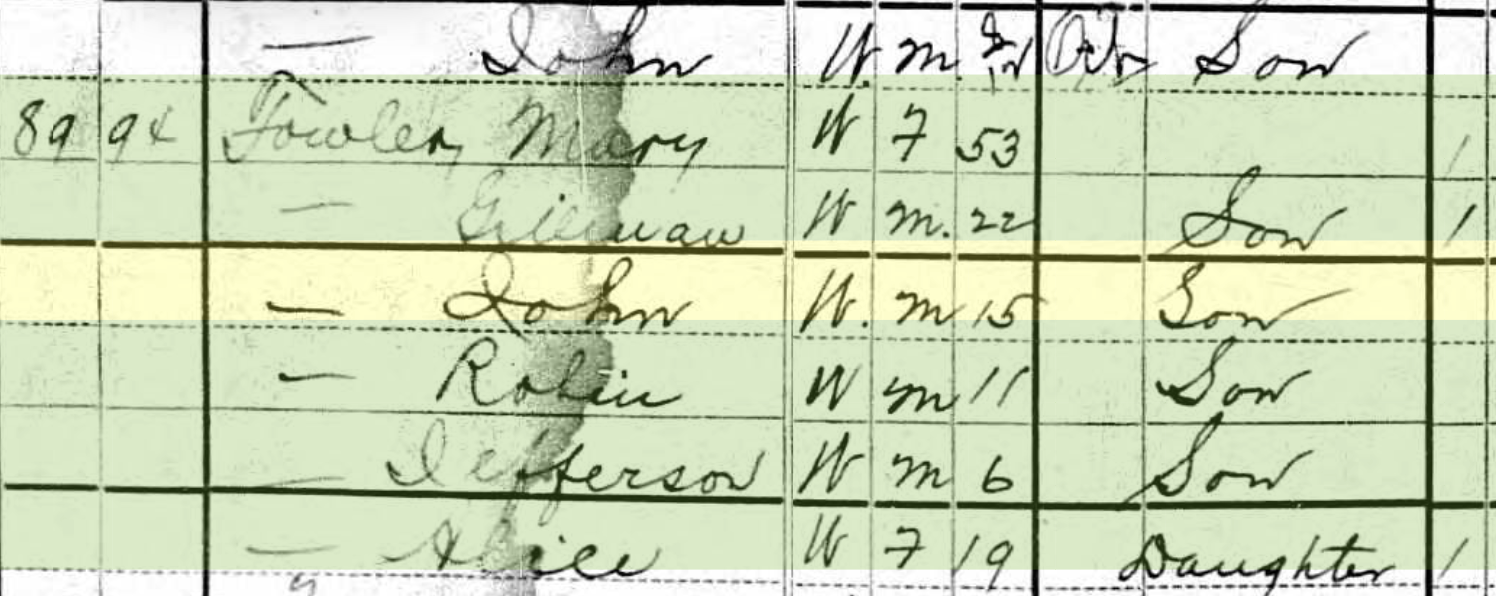 — John W. m. Son
89 94 Fowler, Mary W F 53 1
— W m. 22 Son 1
— John W. m 15 Son
— Robin W m 11 Son
— Jefferson W m 6 Son
— Alice W F 19 Daughter 1